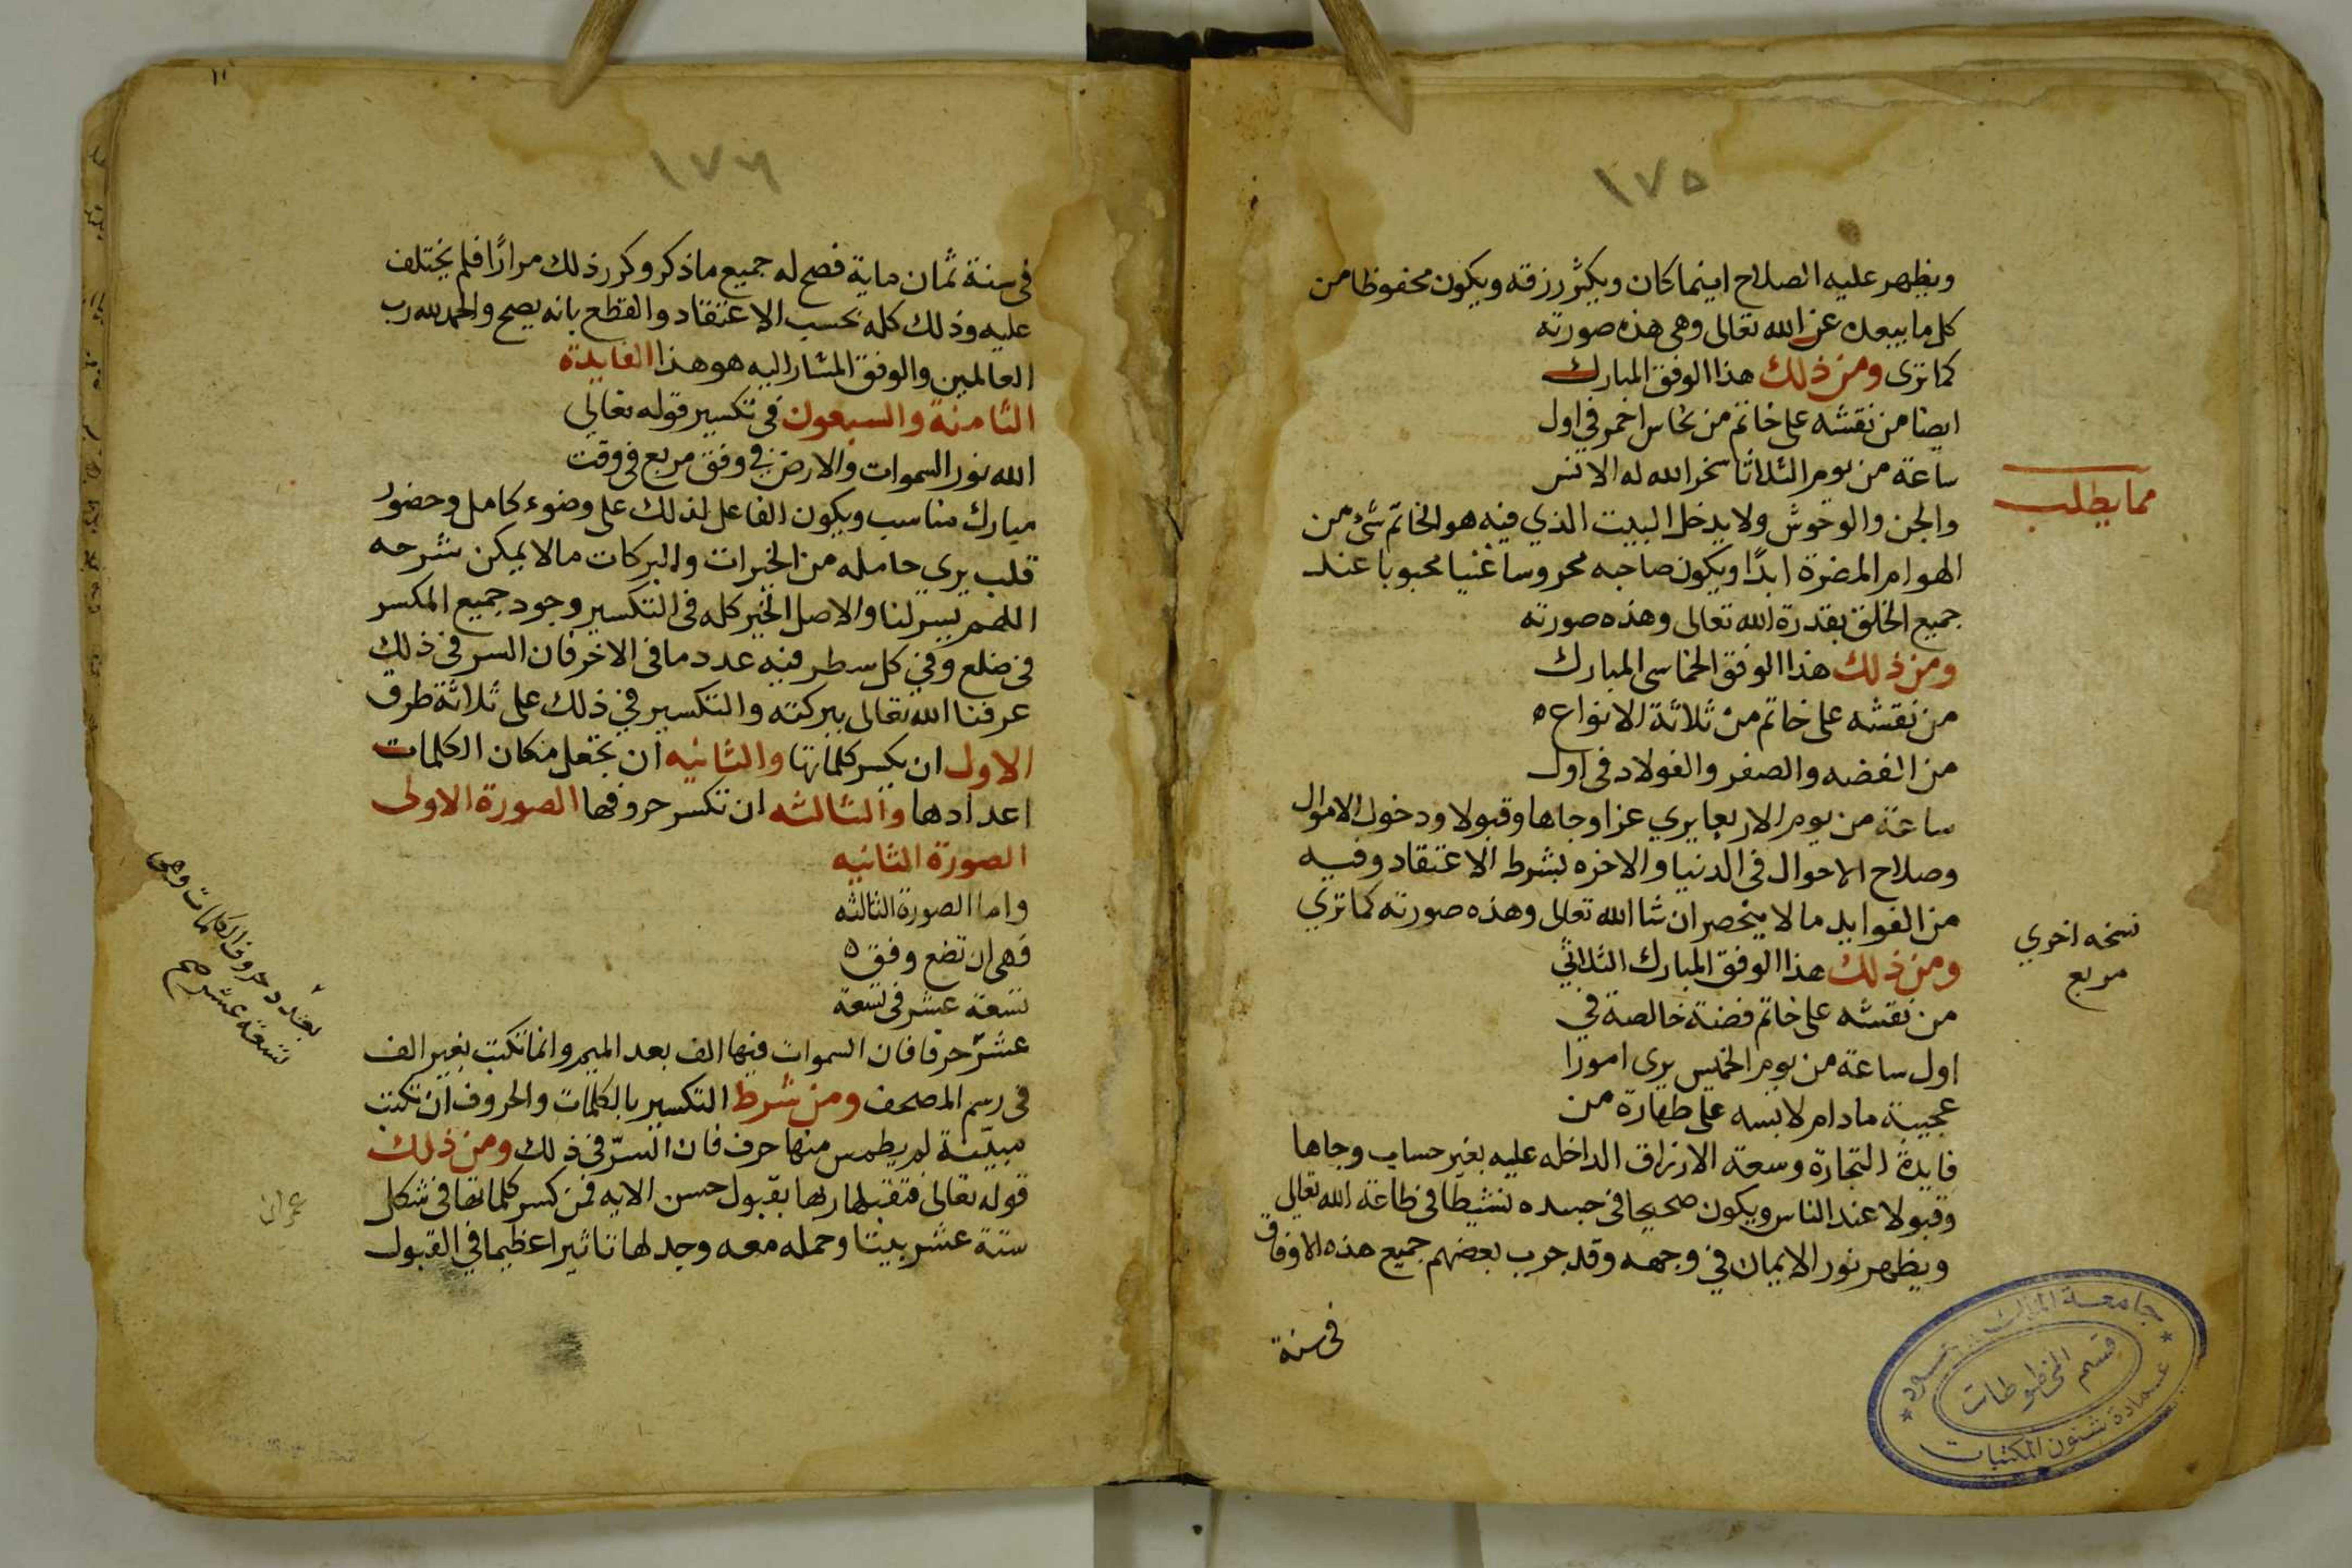 ١٧٥
ويظهر عليه الصلاح اينما كان ويكثر رزقه ويكون محفوظا من
كل ما يبعده عن الله تعالى وهى هذه صورته
كما ترى ومن ذلك هذا الوفق المبارك
ايضا من نقشه على خاتم من نحاس احمر في اول
ساعة من يوم الثلاثا سخر الله له الانس
والجن والوحوش ولا يدخل البيت الذي فيه هو الخاتم شئ من
الهوام المضرة ابدًا ويكون صاحبه محروسا غنيا محبوبا عند
جميع الخلق بقدرة الله تعالى وهذه صورته
ومن ذلك هذا الوفق الخماسى المبارك
من نقشه على خاتم من ثلاثة الانواع ه
من الفضه والصفر والفولاد فى اول
ساعة من يوم الاربعا يرى عزا وجاها وقبولا ودخول الاموال
وصلاح الاحوال فى الدنيا والاخره بشرط الاعتقاد وفيه
من الفوايد ما لا ينحصر ان شا الله تعالى وهذه صورته كما تري
ومن ذلك هذا الوفق المبارك الثلاثي
من نقشه على خاتم فضة خالصة في
اول ساعة من يوم الخميس يرى امورًا
عجيبة مادام لابسه على طهارة من
فايدة التجارة وسعة الارزاق الداخله عليه بغير حساب وجاها
وقبولا عند الناس ويكون صحيحا فى جسده نشيطا فى طاعة الله تعالى
ويظهر نور الايمان في وجهه وقد جرب بعضهم جميع هذه الاوفاق
فى سنة
مما يطلب
نسخه اخري
مربع
جامعة الملك سعود
قسم المخطوطات
عمادة شئون المكتبات
١١
١٧٦
فى سنة ثمان ماية فصح له جميع ما ذكر وكرر ذلك مرارًا فلم يختلف
عليه وذلك كله بحسب الاعتقاد والقطع بانه يصح والحمد لله رب
العالمين والوفق المشار اليه هو هذا الفايدة
الثامنة والسبعون فى تكسير قوله تعالى
الله نور السموات والارض في وفق مربع فى وقت
مبارك مناسب ويكون الفاعل لذلك على وضوء كامل وحضور
قلب يرى حامله من الخيرات والبركات مالا يمكن شرحه
اللهم يسر لنا والاصل الخير كله فى التكسير وجود جميع المكسر
فى ضلع وفي كل سطر فيه عدد ما فى الاخر فان السر فى ذلك
عرفنا الله تعالى ببركته والتكسير في ذلك على ثلاثة طرق
الاول ان يكسر كلماتها والثانيه ان تجعل مكان الكلمات
اعدادها والثالثه ان تكسر حروفها الصورة الاولى
الصورة الثانيه
واما الصورة الثالثه
فهى ان تضع وفق ه
تسعة عشر فى تسعة
عشر حرفا فان السموات فيها الف بعد الميم وانما تكتب بغير الف
فى رسم المصحف ومن شرط التكسير بالكلمات والحروف ان تكتب
مبيّنة لم يطمس منها حرف فان السرّ فى ذلك ومن ذلك
قوله تعالى فتقبلها ربها بقبول حسن الايه فمن كسر كلماتها فى شكل
ستة عشر بيتا وحمله معه وجد لها تاثيرا عظيما في القبول
بعدد حروف الكلمات وهى
تسعة عشر صح
عمران